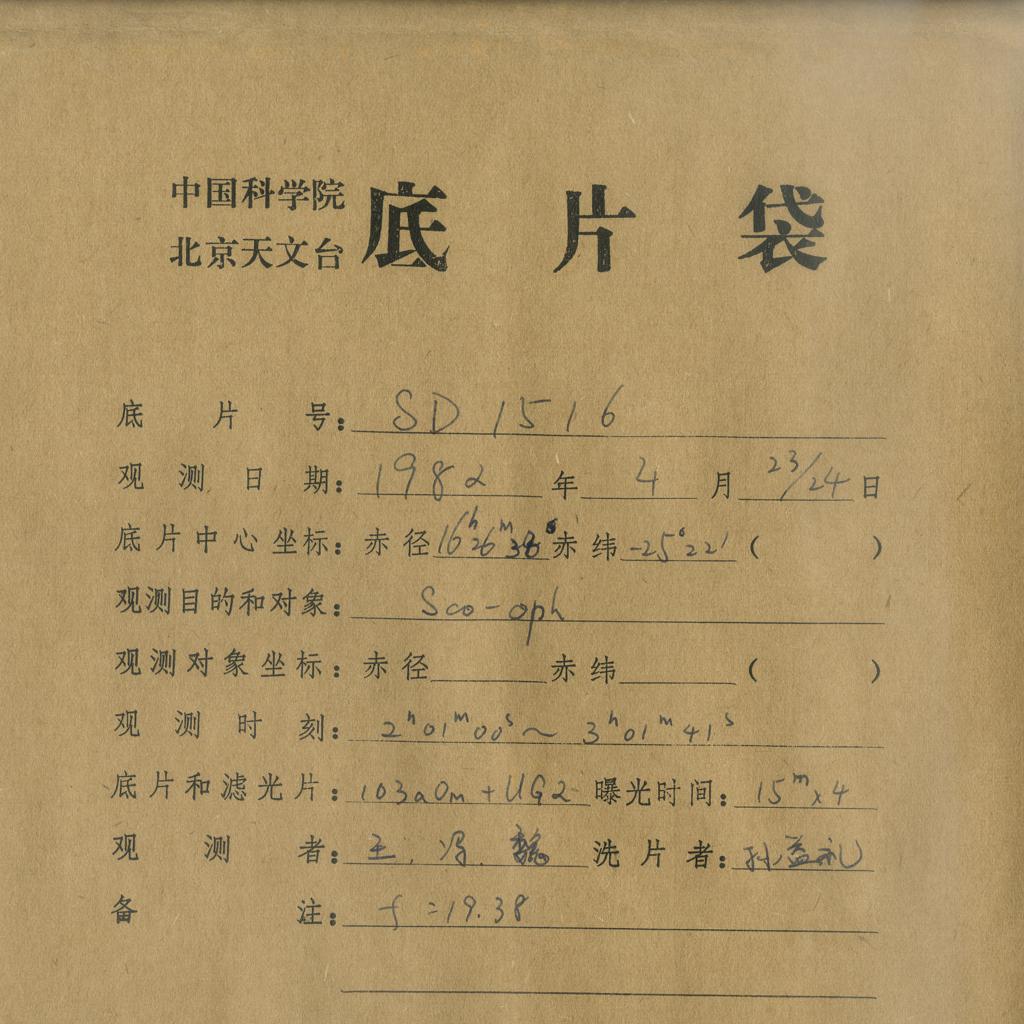 中国科学院
北京天文台
底片袋
底片号：SD 1516
观测日期：1982年4月23/24日
底片中心坐标：赤径16h26m38s赤纬-25°22′（ ）
观测目的和对象：Sco-oph
观测对象坐标：赤径 赤纬 （ ）
观测时刻：2h01m00s～3h01m41s
底片和滤光片：103aOm+UG2 曝光时间：15m×4
观测者：王.冯. 洗片者：孙益礼
备注：f=19.38